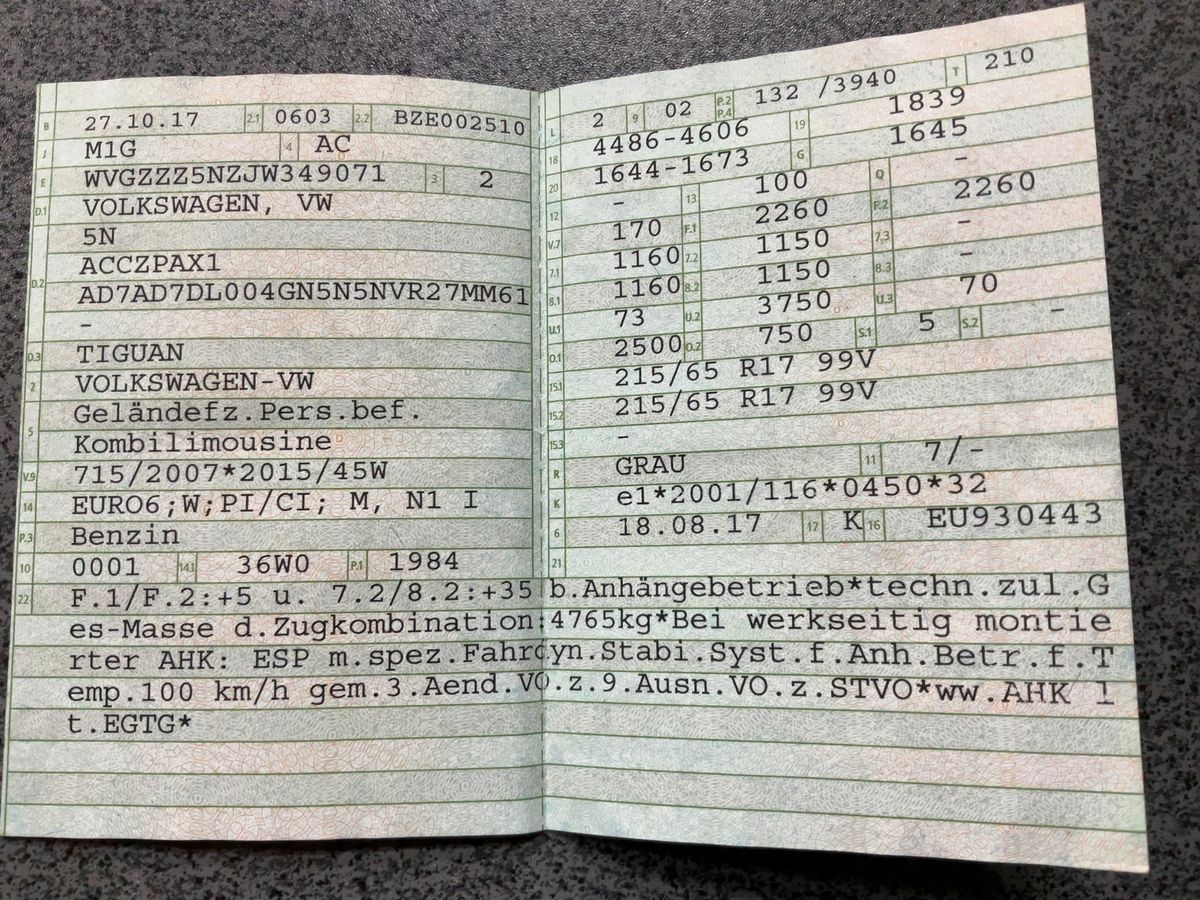 B 27.10.17 2.1 0603 2.2 BZE002510
J M1G 4 AC
E WVGZZZ5NZJW349071 3 2
D.1 VOLKSWAGEN, VW
5N
D.2 ACCZPAX1
AD7AD7DL004GN5N5NVR27MM61
-
D.3 TIGUAN
2 VOLKSWAGEN-VW
5 Geländefz.Pers.bef.
Kombilimousine
V.9 715/2007*2015/45W
14 EURO6;W;PI/CI; M, N1 I
P.3 Benzin
10 0001 14.1 36W0 P.1 1984
L 2 9 02 P.2 P.4 132 /3940 T 210
18 4486-4606 19 1839
20 1644-1673 G 1645
12 - 13 100 Q -
V.7 170 F.1 2260 F.2 2260
7.1 1160 7.2 1150 7.3 -
8.1 1160 8.2 1150 8.3 -
U.1 73 U.2 3750 U.3 70
O.1 2500 O.2 750 S.1 5 S.2 -
15.1 215/65 R17 99V
15.2 215/65 R17 99V
15.3 -
R GRAU 11 7/-
K e1*2001/116*0450*32
6 18.08.17 17 K 16 EU930443
21
22 F.1/F.2:+5 u. 7.2/8.2:+35 b.Anhängebetrieb*techn.zul.G
es-Masse d.Zugkombination:4765kg*Bei werkseitig montie
rter AHK: ESP m.spez.Fahrdyn.Stabi.Syst.f.Anh.Betr.f.T
emp.100 km/h gem.3.Aend.VO.z.9.Ausn.VO.z.STVO*ww.AHK l
t.EGTG*